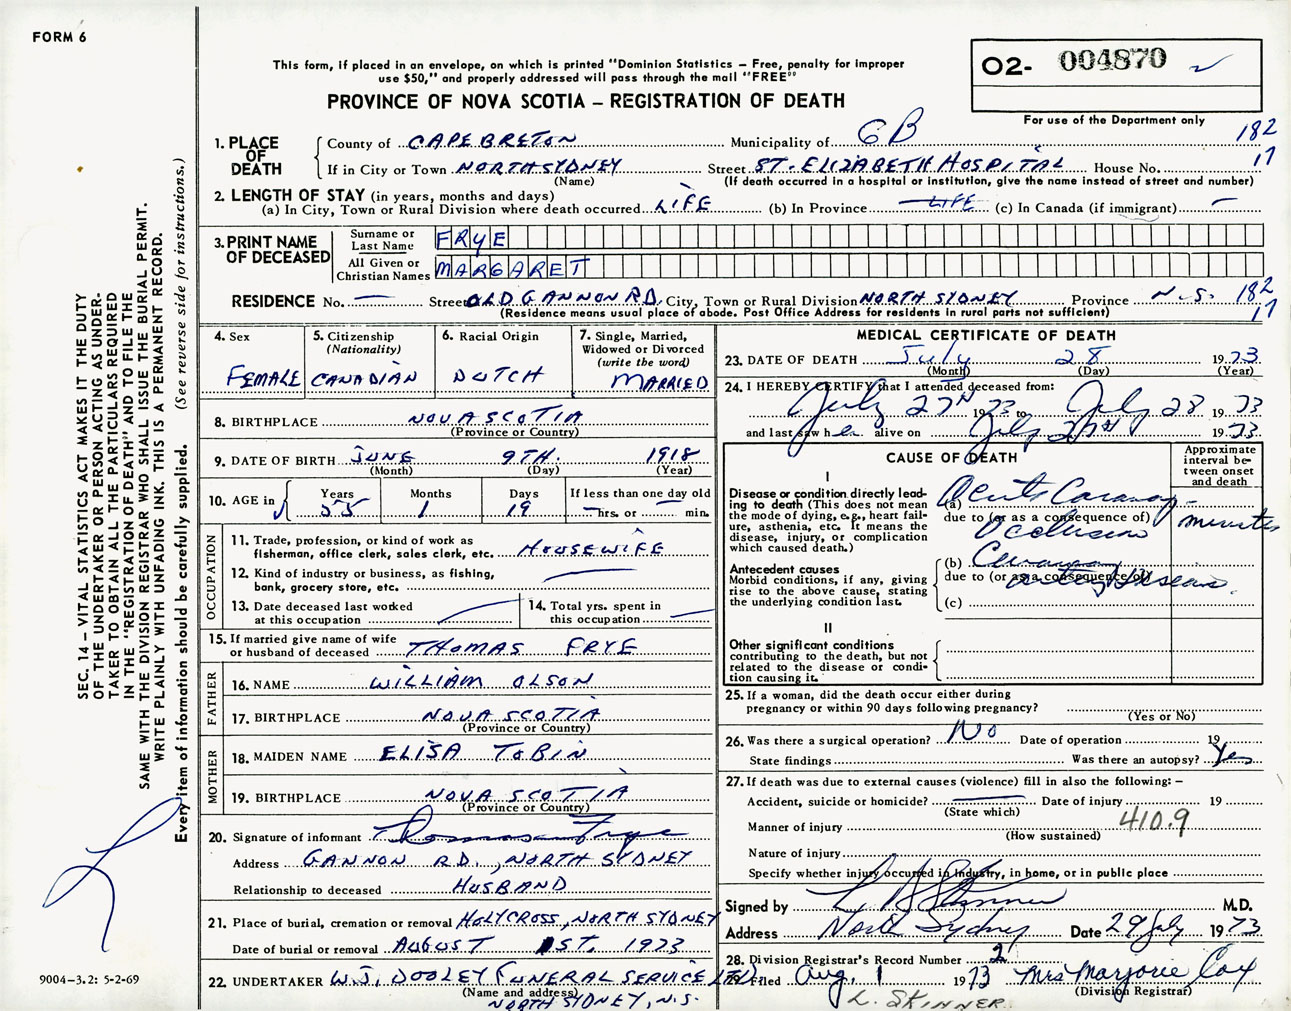 FORM 6
This form, if placed in an envelope, on which is printed "Dominion Statistics – Free, penalty for improper
use $50," and properly addressed will pass through the mail "FREE"
PROVINCE OF NOVA SCOTIA – REGISTRATION OF DEATH
O2- 004870
For use of the Department only
182
17
1. PLACE OF DEATH
County of CAPE BRETON Municipality of CB
If in City or Town NORTH SYDNEY Street ST. ELIZABETH HOSPITAL House No.
(Name) (If death occurred in a hospital or institution, give the name instead of street and number)
2. LENGTH OF STAY (in years, months and days)
(a) In City, Town or Rural Division where death occurred LIFE (b) In Province LIFE (c) In Canada (if immigrant) —
3. PRINT NAME OF DECEASED
Surname or Last Name FRYE
All Given or Christian Names MARGARET
RESIDENCE No. — Street OLD GANNON RD, City, Town or Rural Division NORTH SYDNEY Province N.S. 182
(Residence means usual place of abode. Post Office Address for residents in rural parts not sufficient) 17
4. Sex FEMALE
5. Citizenship (Nationality) CANADIAN
6. Racial Origin DUTCH
7. Single, Married, Widowed or Divorced (write the word) MARRIED
8. BIRTHPLACE NOVA SCOTIA
(Province or Country)
9. DATE OF BIRTH JUNE 9TH. 1918
(Month) (Day) (Year)
10. AGE in Years 55 Months 1 Days 19 If less than one day old — hrs. or — min.
OCCUPATION
11. Trade, profession, or kind of work as
fisherman, office clerk, sales clerk, etc. HOUSEWIFE
12. Kind of industry or business, as fishing,
bank, grocery store, etc.
13. Date deceased last worked
at this occupation
14. Total yrs. spent in
this occupation
15. If married give name of wife
or husband of deceased THOMAS FRYE
FATHER
16. NAME WILLIAM OLSON
17. BIRTHPLACE NOVA SCOTIA
(Province or Country)
MOTHER
18. MAIDEN NAME ELISA TOBIN
19. BIRTHPLACE NOVA SCOTIA
(Province or Country)
20. Signature of informant Thomas Frye
Address GANNON RD., NORTH SYDNEY
Relationship to deceased HUSBAND
21. Place of burial, cremation or removal HOLY CROSS, NORTH SYDNEY
Date of burial or removal AUGUST 1ST, 1973
22. UNDERTAKER W.J. DOOLEY FUNERAL SERVICE LTD.
(Name and address)
NORTH SYDNEY, N.S.
MEDICAL CERTIFICATE OF DEATH
23. DATE OF DEATH July 28 1973
(Month) (Day) (Year)
24. I HEREBY CERTIFY that I attended deceased from:
July 27th 1973 to July 28 1973
and last saw her alive on July 1973
CAUSE OF DEATH
Approximate interval between onset and death
I
Disease or condition directly leading to death (This does not mean the mode of dying, e.g., heart failure, asthenia, etc. It means the disease, injury, or complication which caused death.)
(a) Acute Coronary
due to (or as a consequence of)
Occlusion
minutes
Antecedent causes
Morbid conditions, if any, giving rise to the above cause, stating the underlying condition last.
(b) Coronary
due to (or as a consequence of)
artery disease.
(c)
II
Other significant conditions
contributing to the death, but not related to the disease or condition causing it.
25. If a woman, did the death occur either during
pregnancy or within 90 days following pregnancy?
(Yes or No)
26. Was there a surgical operation? No Date of operation 19
State findings Was there an autopsy? Yes
27. If death was due to external causes (violence) fill in also the following: –
Accident, suicide or homicide? Date of injury 19
(State which)
Manner of injury 410.9
(How sustained)
Nature of injury
Specify whether injury occurred in industry, in home, or in public place
Signed by L. Skinner M.D.
Address North Sydney Date 29 July 1973
28. Division Registrar's Record Number 2
29. Filed Aug. 1 1973 Mrs Marjorie Cox
(Division Registrar)
L. SKINNER
SEC. 14 – VITAL STATISTICS ACT MAKES IT THE DUTY
OF THE UNDERTAKER OR PERSON ACTING AS UNDER-
TAKER TO OBTAIN ALL THE PARTICULARS REQUIRED
IN THE "REGISTRATION OF DEATH" AND TO FILE THE
SAME WITH THE DIVISION REGISTRAR WHO SHALL ISSUE THE BURIAL PERMIT.
WRITE PLAINLY WITH UNFADING INK. THIS IS A PERMANENT RECORD.
Every item of information should be carefully supplied. (See reverse side for instructions.)
9004-3.2: 5-2-69